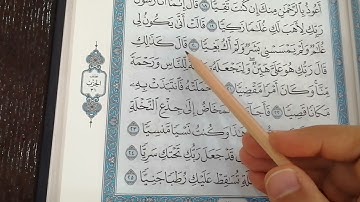 أَعُوذُ بِالرَّحْمَٰنِ مِنكَ إِن كُنتَ تَقِيًّا ١٨ قَالَ إِنَّمَا أَنَا رَسُولُ
رَبِّكِ لِأَهَبَ لَكِ غُلَامًا زَكِيًّا ١٩ قَالَتْ أَنَّىٰ يَكُونُ لِي
غُلَامٌ وَلَمْ يَمْسَسْنِي بَشَرٌ وَلَمْ أَكُ بَغِيًّا ٢٠ قَالَ كَذَٰلِكِ
قَالَ رَبُّكِ هُوَ عَلَيَّ هَيِّنٌ وَلِنَجْعَلَهُ لِلنَّاسِ وَرَحْمَةً
مِّنَّا وَكَانَ أَمْرًا مَّقْضِيًّا ٢١ فَحَمَلَتْهُ فَانتَبَذَتْ بِهِ
مَكَانًا قَصِيًّا ٢٢ فَأَجَاءَهَا الْمَخَاضُ إِلَىٰ جِذْعِ النَّخْلَةِ
هَٰذَا وَكُنتُ نَسْيًا مَّنسِيًّا ٢٣
قَدْ جَعَلَ رَبُّكِ تَحْتَكِ سَرِيًّا ٢٤
النَّخْلَةِ تُسَاقِطْ عَلَيْكِ رُطَبًا جَنِيًّا ٢٥